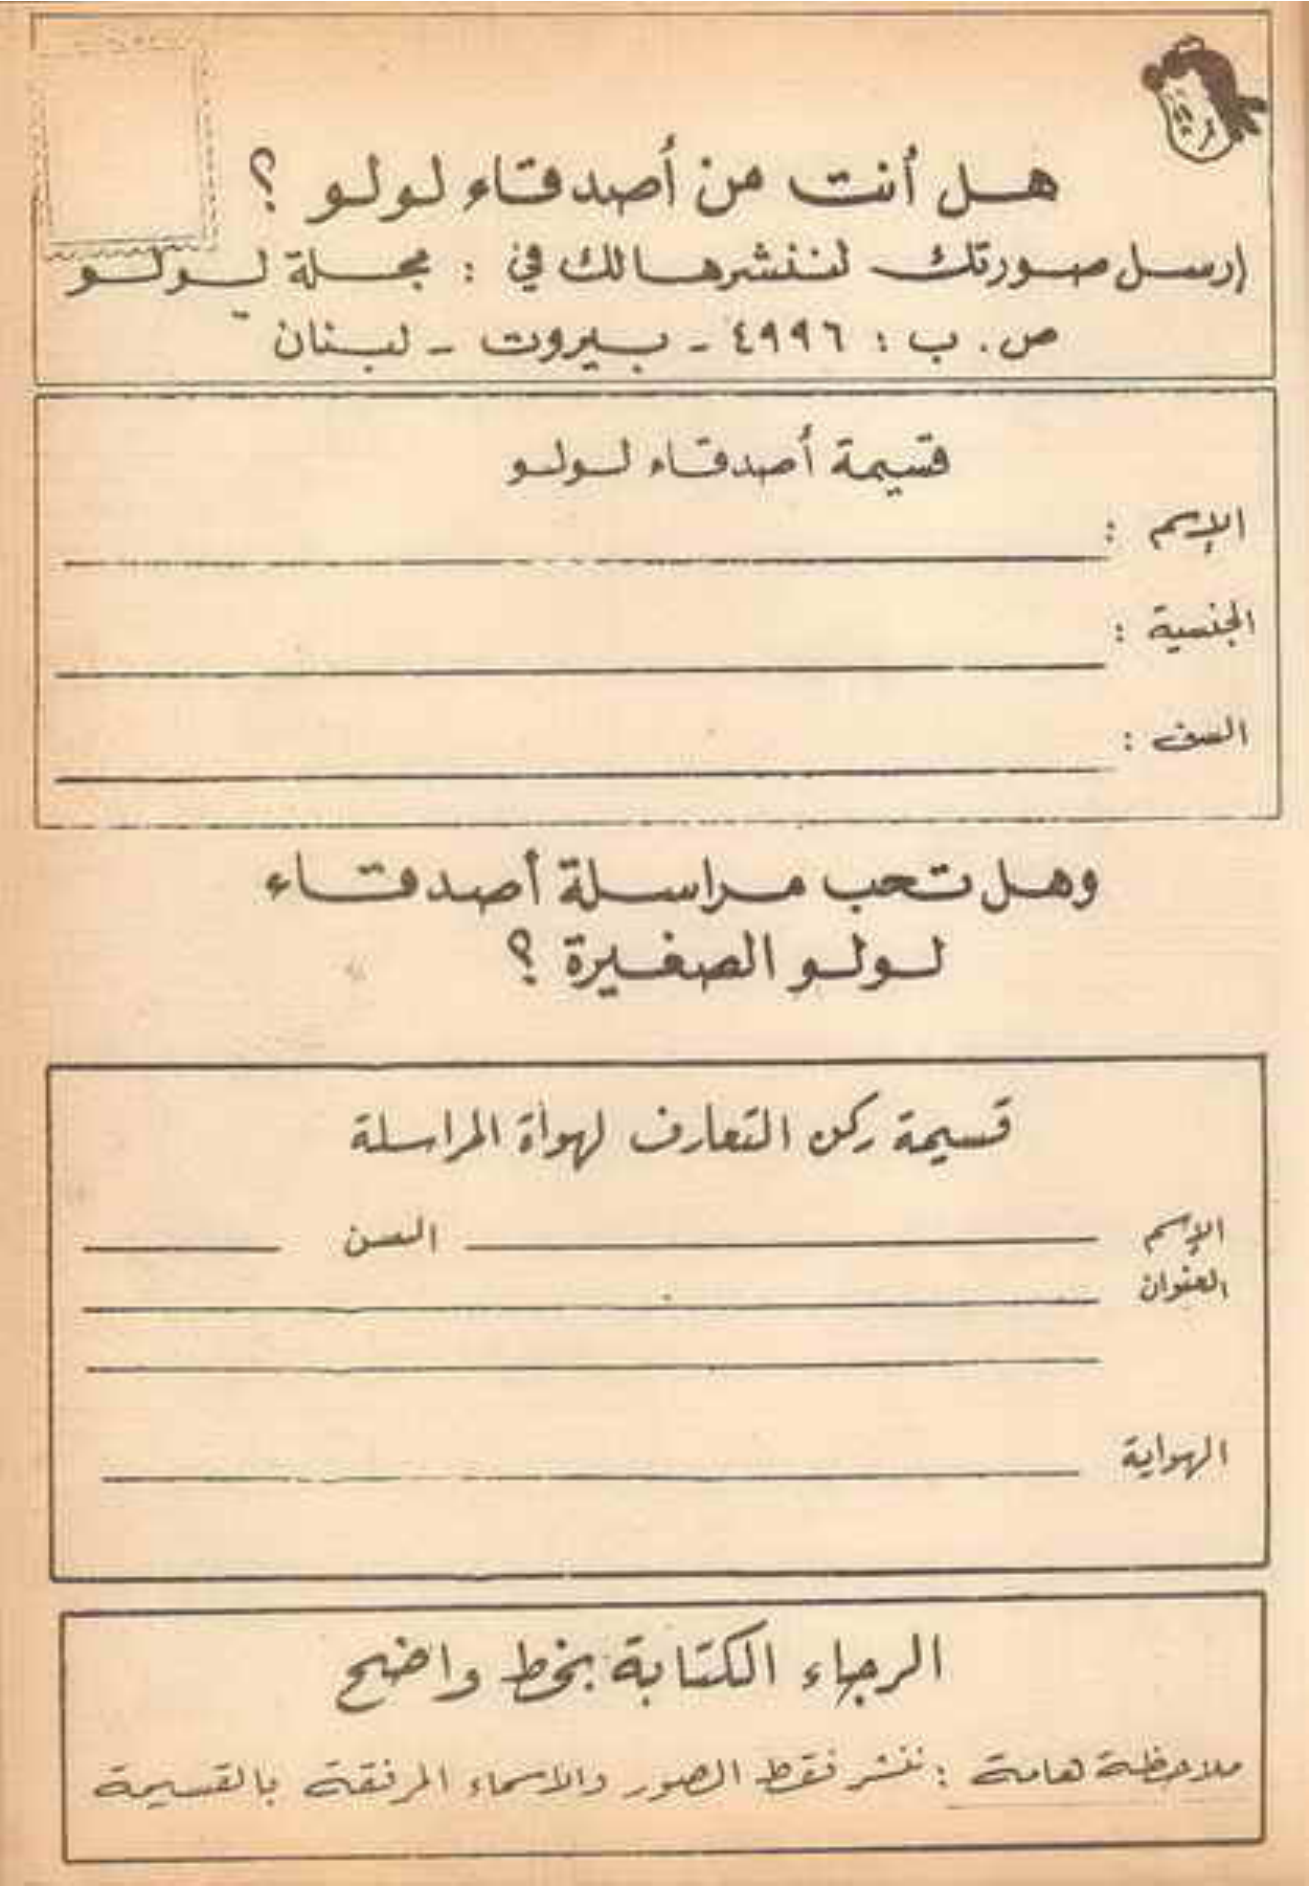 هل أنت من أصدقاء لولو ؟
إرسل صورتك لننشرها لك في : مجلة لولو
ص . ب : ٤٩٩٦ - بيروت - لبنان
قسيمة أصدقاء لولو
الإسم :
الجنسية :
السن :
وهل تحب مراسلة أصدقاء
لولو الصغيرة ؟
قسيمة ركن التعارف لهواة المراسلة
الإسم السن
العنوان
الهواية
الرجاء الكتابة بخط واضح
ملاحظة هامة : ننشر فقط الصور والاسماء المرفقة بالقسيمة